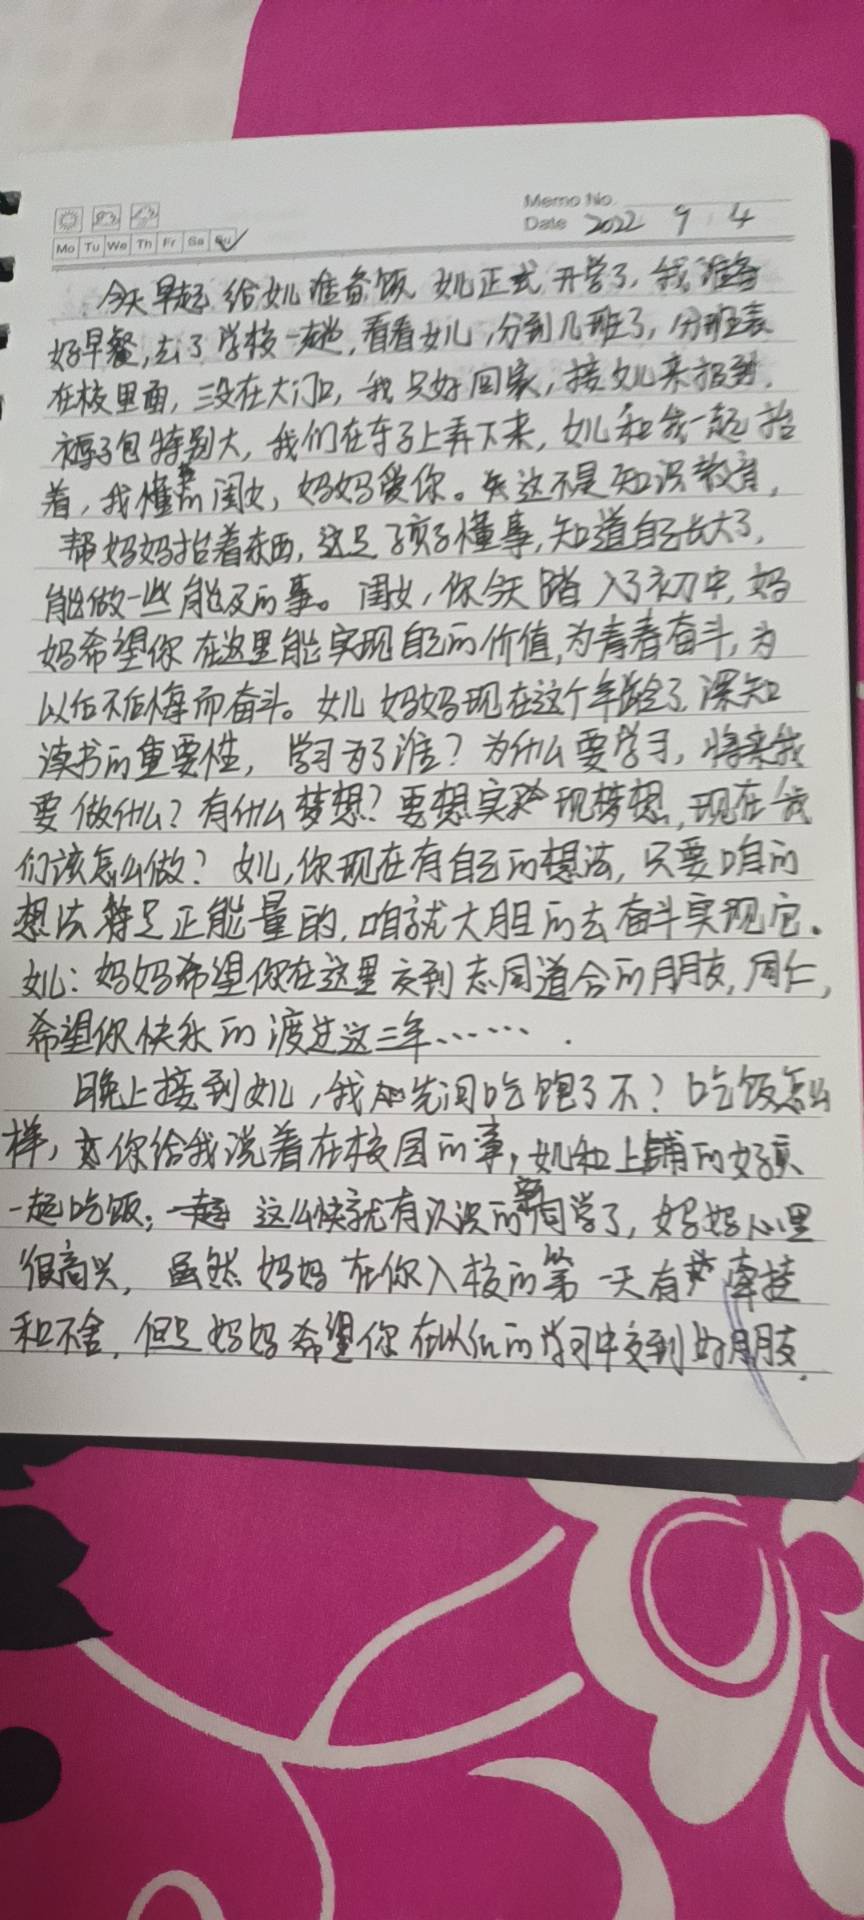 Memo No.
Date 2022 9 4
Mo Tu We Th Fr Sa Su
今天早起给女儿准备饭 女儿正式开学了,我准备
好早餐,去了学校一趟,看看女儿,分到几班了,分班表
在校里面,没在大门口,我只好回家,接女儿来报到,
褥子包特别大,我们在车子上弄下来,女儿和我一起抬
着,我懂事的闺女,妈妈爱你。这不是知识教育,
帮妈妈抬着东西,这是孩子懂事,知道自己长大了,
能做一些能及的事。闺女,你今天踏入了初中,妈
妈希望你在这里能实现自己的价值,为青春奋斗,为
以后不后悔而奋斗。女儿妈妈现在这个年龄了,深知
读书的重要性,学习为了谁?为什么要学习,将来我
要做什么?有什么梦想?要想实现梦想,现在我
们该怎么做?女儿,你现在有自己的想法,只要咱的
想法是正能量的,咱就大胆的去奋斗实现它。
女儿:妈妈希望你在这里交到志同道合的朋友,同仁,
希望你快乐的渡过这三年…….
晚上接到女儿,我先问吃饱了不?吃饭怎么
样,你给我说着在校园的事,女儿和上铺的女孩
一起吃饭;这么快就有认识的新同学了,妈妈心里
很高兴,虽然妈妈在你入校的第一天有牵挂
和不舍,但是妈妈希望你在以后的学习中交到好朋友.